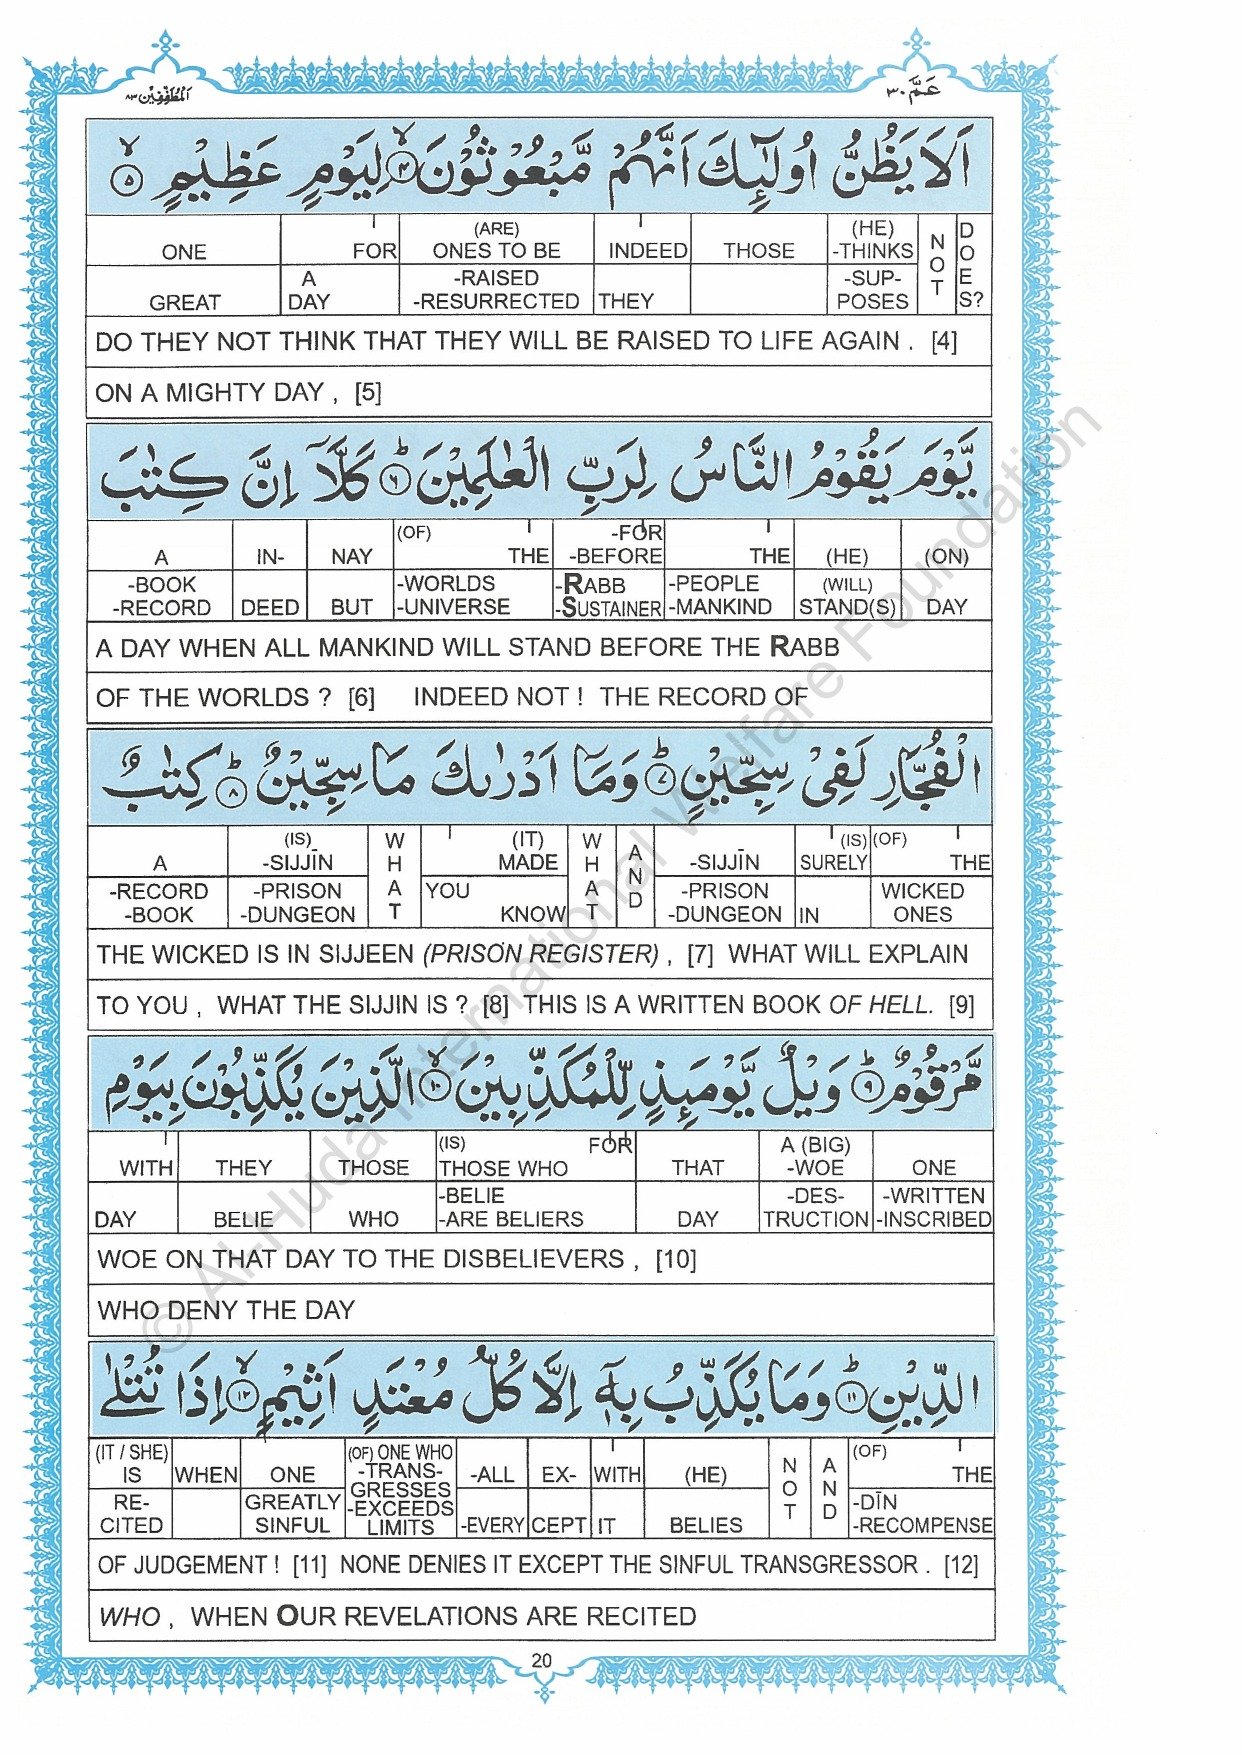 المُطَفِّفِيْن ٨٣
عَمَّ ٣٠
اَلَا يَظُنُّ اُولٰٓئِكَ اَنَّهُمْ مَّبْعُوْثُوْنَ ۙ﴿۴﴾ لِيَوْمٍ عَظِيْمٍ ۙ﴿۵﴾
ONE FOR (ARE) ONES TO BE INDEED THOSE (HE) -THINKS NOT DOES?
GREAT A DAY -RAISED -RESURRECTED THEY -SUP-POSES
DO THEY NOT THINK THAT THEY WILL BE RAISED TO LIFE AGAIN . [4]
ON A MIGHTY DAY , [5]
يَّوْمَ يَقُوْمُ النَّاسُ لِرَبِّ الْعٰلَمِيْنَ ؕ﴿۶﴾ كَلَّاۤ اِنَّ كِتٰبَ
A IN- NAY (OF) THE -FOR -BEFORE THE (HE) (ON)
-BOOK -RECORD DEED BUT -WORLDS -UNIVERSE -RABB -SUSTAINER -PEOPLE -MANKIND (WILL) STAND(S) DAY
A DAY WHEN ALL MANKIND WILL STAND BEFORE THE RABB
OF THE WORLDS ? [6] INDEED NOT ! THE RECORD OF
الْفُجَّارِ لَفِيْ سِجِّيْنٍ ؕ﴿۷﴾ وَمَاۤ اَدْرٰىكَ مَا سِجِّيْنٌ ؕ﴿۸﴾ كِتٰبٌ
A (IS) -SIJJĪN WHAT (IT) MADE WHAT AND -SIJJĪN (IS) SURELY (OF) THE
-RECORD -BOOK -PRISON -DUNGEON YOU KNOW -PRISON -DUNGEON IN WICKED ONES
THE WICKED IS IN SIJJEEN (PRISON REGISTER) , [7] WHAT WILL EXPLAIN
TO YOU , WHAT THE SIJJIN IS ? [8] THIS IS A WRITTEN BOOK OF HELL. [9]
مَّرْقُوْمٌ ؕ﴿۹﴾ وَيْلٌ يَّوْمَئِذٍ لِّلْمُكَذِّبِيْنَ ۙ﴿۱۰﴾ الَّذِيْنَ يُكَذِّبُوْنَ بِيَوْمِ
WITH THEY THOSE (IS) FOR THOSE WHO THAT A (BIG) -WOE ONE
DAY BELIE WHO -BELIE -ARE BELIERS DAY -DES-TRUCTION -WRITTEN -INSCRIBED
WOE ON THAT DAY TO THE DISBELIEVERS , [10]
WHO DENY THE DAY
الدِّيْنِ ؕ﴿۱۱﴾ وَمَا يُكَذِّبُ بِهٖۤ اِلَّا كُلُّ مُعْتَدٍ اَثِيْمٍ ۙ﴿۱۲﴾ اِذَا تُتْلٰى
(IT / SHE) IS WHEN ONE (OF) ONE WHO -TRANS-GRESSES -ALL EX- WITH (HE) NOT AND (OF) THE
RE-CITED GREATLY SINFUL -EXCEEDS LIMITS -EVERY CEPT IT BELIES -DĪN -RECOMPENSE
OF JUDGEMENT ! [11] NONE DENIES IT EXCEPT THE SINFUL TRANSGRESSOR . [12]
WHO , WHEN OUR REVELATIONS ARE RECITED
20
© Al-Huda International Welfare Foundation